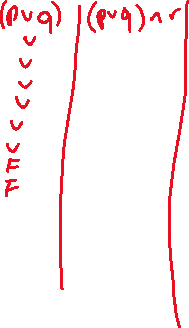 (p∨q) | (p∨q) ∧ r
V
V
V
V
V
V
F
F